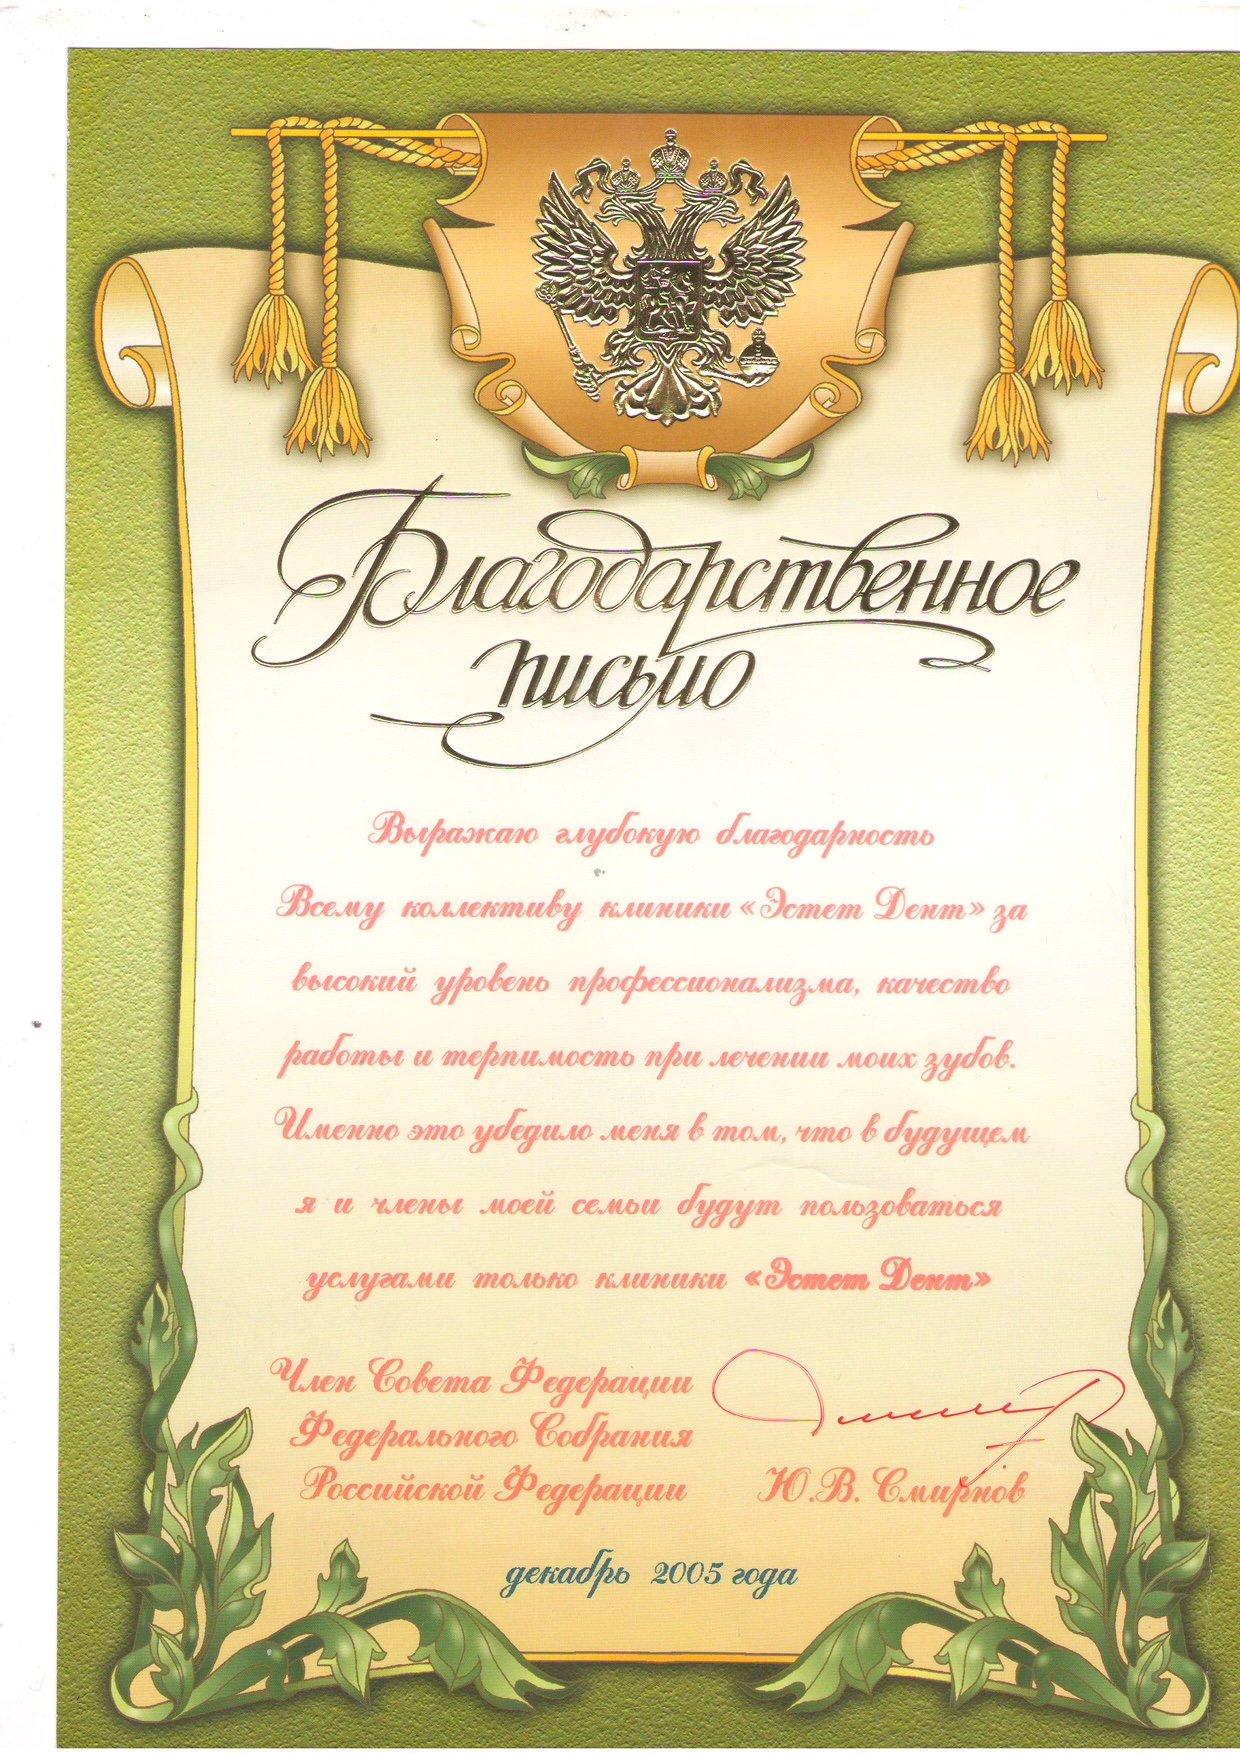 Благодарственное
письмо
Выражаю глубокую благодарность
Всему коллективу клиники «Эстет Дент» за
высокий уровень профессионализма, качество
работы и терпимость при лечении моих зубов.
Именно это убедило меня в том, что в будущем
я и члены моей семьи будут пользоваться
услугами только клиники «Эстет Дент»
Член Совета Федерации
Федерального Собрания
Российской Федерации Ю.В. Смирнов
декабрь 2005 года